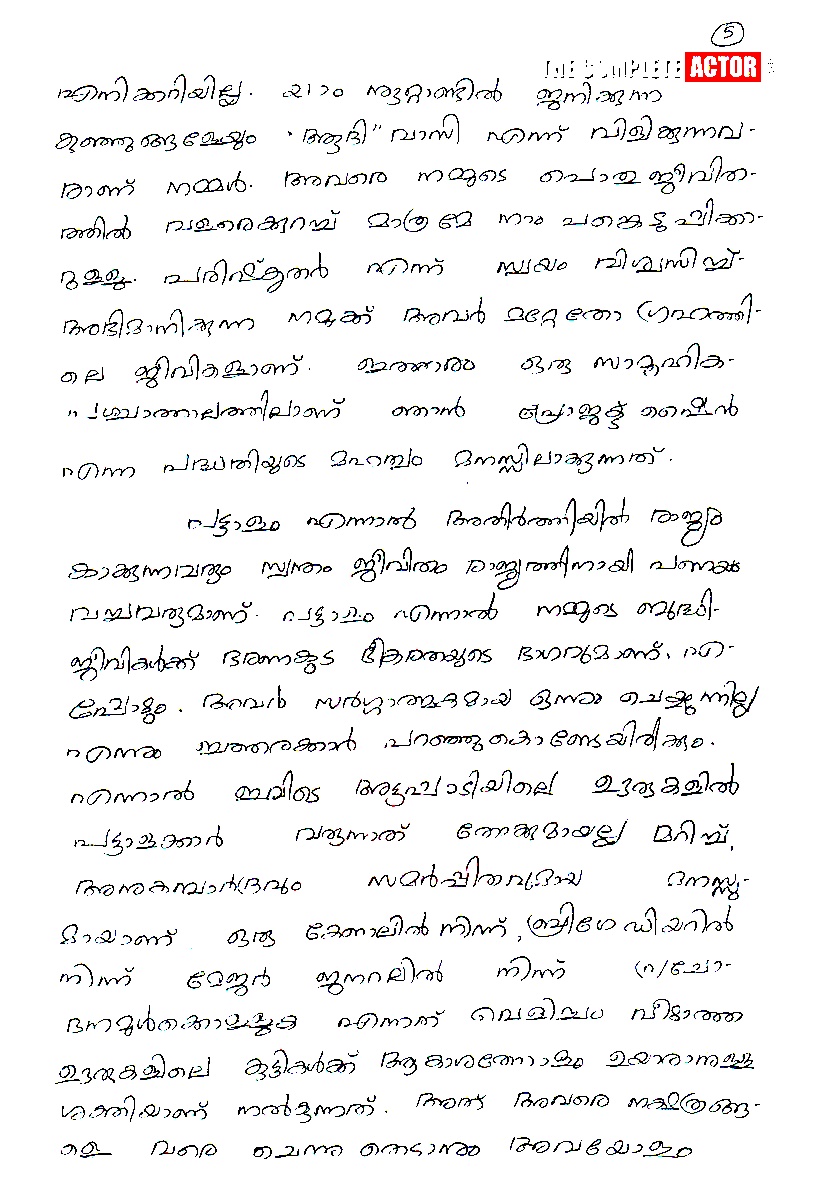 5
THE COMPLETE ACTOR
എനിക്കറിയില്ല. ഈ നൂറ്റാണ്ടിൽ ജനിക്കുന്ന
കുഞ്ഞുങ്ങളേയും "ആദി" വാസി എന്ന് വിളിക്കുന്നവ-
രാണ് നമ്മൾ. അവരെ നമ്മുടെ പൊതു ജീവിത-
ത്തിൽ വളരെക്കുറച്ച് മാത്രമേ നാം പങ്കെടുപ്പിക്കാ-
റുള്ളൂ. പരിഷ്കൃതർ എന്ന് സ്വയം വിശ്വസിച്ച്-
അഭിമാനിക്കുന്ന നമുക്ക് അവർ മറ്റേതോ ഗ്രഹത്തി-
ലെ ജീവികളാണ്. ഇത്തരം ഒരു സാമൂഹിക-
പശ്ചാത്തലത്തിലാണ് ഞാൻ പ്രോജക്ട് ഷൈൻ
എന്ന പദ്ധതിയുടെ മഹത്വം മനസ്സിലാക്കുന്നത്.
പട്ടാളം എന്നാൽ അതിർത്തിയിൽ രാജ്യം
കാക്കുന്നവരും സ്വന്തം ജീവിതം രാജ്യത്തിനായി പണയം
വച്ചവരുമാണ്. പട്ടാളം എന്നാൽ നമ്മുടെ ബുദ്ധി-
ജീവികൾക്ക് ഭരണകൂട ഭീകരതയുടെ ഭാഗവുമാണ്. എ-
പ്പോഴും. അവർ സർഗ്ഗാത്മകമായ ഒന്നും ചെയ്യുന്നില്ല
എന്നും ഇത്തരക്കാർ പറഞ്ഞുകൊണ്ടേയിരിക്കും.
എന്നാൽ ഇവിടെ അട്ടപ്പാടിയിലെ ഊരുകളിൽ
പട്ടാളക്കാർ വരുന്നത് തോക്കുമായല്ല മറിച്ച്,
അനുകമ്പാർദ്രവും സമർപ്പിതവുമായ മനസ്സു-
മായാണ് ഒരു കേണലിൽ നിന്ന്, ബ്രിഗേഡിയറിൽ
നിന്ന് മേജർ ജനറലിൽ നിന്ന് പ്രചോ-
ദനമുൾക്കൊള്ളുക എന്നത് വെളിച്ചം വീഴാത്ത
ഊരുകളിലെ കുട്ടികൾക്ക് ആകാശത്തോളം ഉയരാനുള്ള
ശക്തിയാണ് നൽകുന്നത്. അത് അവരെ നക്ഷത്രങ്ങ-
ളെ വരെ ചെന്നു തൊടാനും അവയോളം